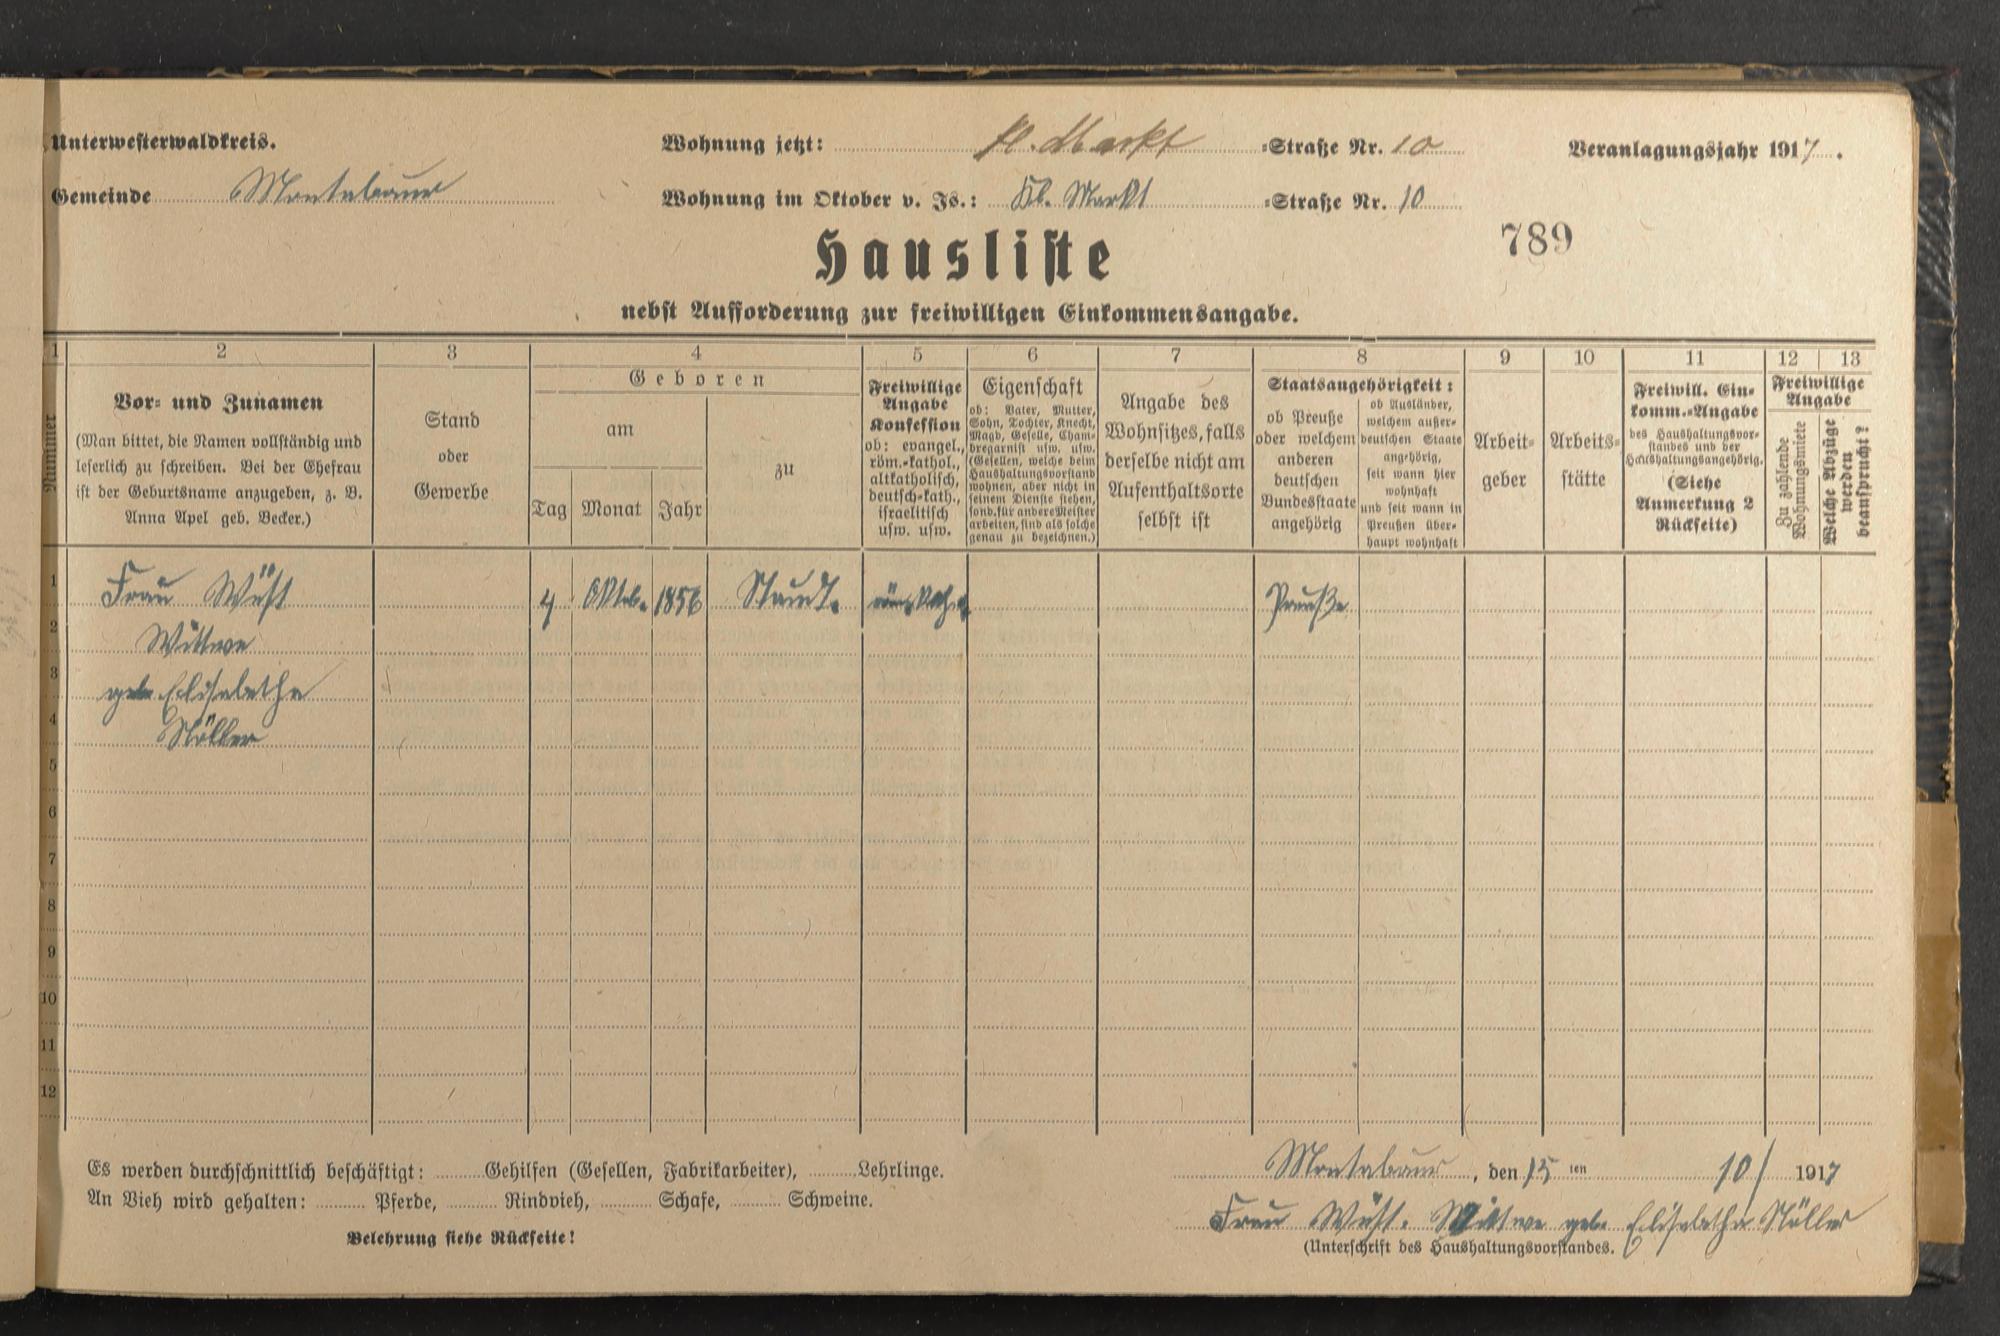 Unterwesterwaldkreis.
Wohnung jetzt: kl. Markt =Straße Nr. 10
Veranlagungsjahr 1917.
Gemeinde Montabaur
Wohnung im Oktober v. Js.: Kl. Markt =Straße Nr. 10
789
Hausliste
nebst Aufforderung zur freiwilligen Einkommensangabe.
1 2 3 4 5 6 7 8 9 10 11 12 13
Nummer
Vor- und Zunamen
(Man bittet, die Namen vollständig und
leserlich zu schreiben. Bei der Ehefrau
ist der Geburtsname anzugeben, z. B.
Anna Apel geb. Becker.)
Stand
oder
Gewerbe
Geboren
am
Tag Monat Jahr
zu
Freiwillige
Angabe
Konfession
ob: evangel.,
röm.-kathol.,
altkatholisch,
deutsch-kath.,
israelitisch
usw. usw.
Eigenschaft
ob: Vater, Mutter,
Sohn, Tochter, Knecht,
Magd, Geselle, Cham-
bregarnist usw. usw.
(Gesellen, welche beim
Haushaltungsvorstand
wohnen, aber nicht in
seinem Dienste stehen,
sond. für andere Meister
arbeiten, sind als solche
genau zu bezeichnen.)
Angabe des
Wohnsitzes, falls
derselbe nicht am
Aufenthaltsorte
selbst ist
Staatsangehörigkeit:
ob Preuße
oder welchem
anderen
deutschen
Bundesstaate
angehörig
ob Ausländer,
welchem außer-
deutschen Staate
angehörig,
seit wann hier
wohnhaft
und seit wann in
Preußen über-
haupt wohnhaft
Arbeit-
geber
Arbeits-
stätte
Freiwill. Ein-
komm.-Angabe
des Haushaltungsvor-
standes und der
Haushaltungsangehörig.
(Siehe
Anmerkung 2
Rückseite)
Freiwillige
Angabe
Zu zahlende
Wohnungsmiete
Welche Abzüge
werden
beansprucht?
1 Frau Wüst 4 Oktob. 1856 Staudt. röm. Kath. Preuße
2 Wittwe
3 geb. Elisabetha
4 Nöller
5
6
7
8
9
10
11
12
Es werden durchschnittlich beschäftigt: Gehilfen (Gesellen, Fabrikarbeiter), Lehrlinge.
An Vieh wird gehalten: Pferde, Rindvieh, Schafe, Schweine.
Belehrung siehe Rückseite!
Montabaur, den 15ten 10/ 1917
Frau Wüst. Wittwe geb. Elisabetha Nöller
(Unterschrift des Haushaltungsvorstandes.